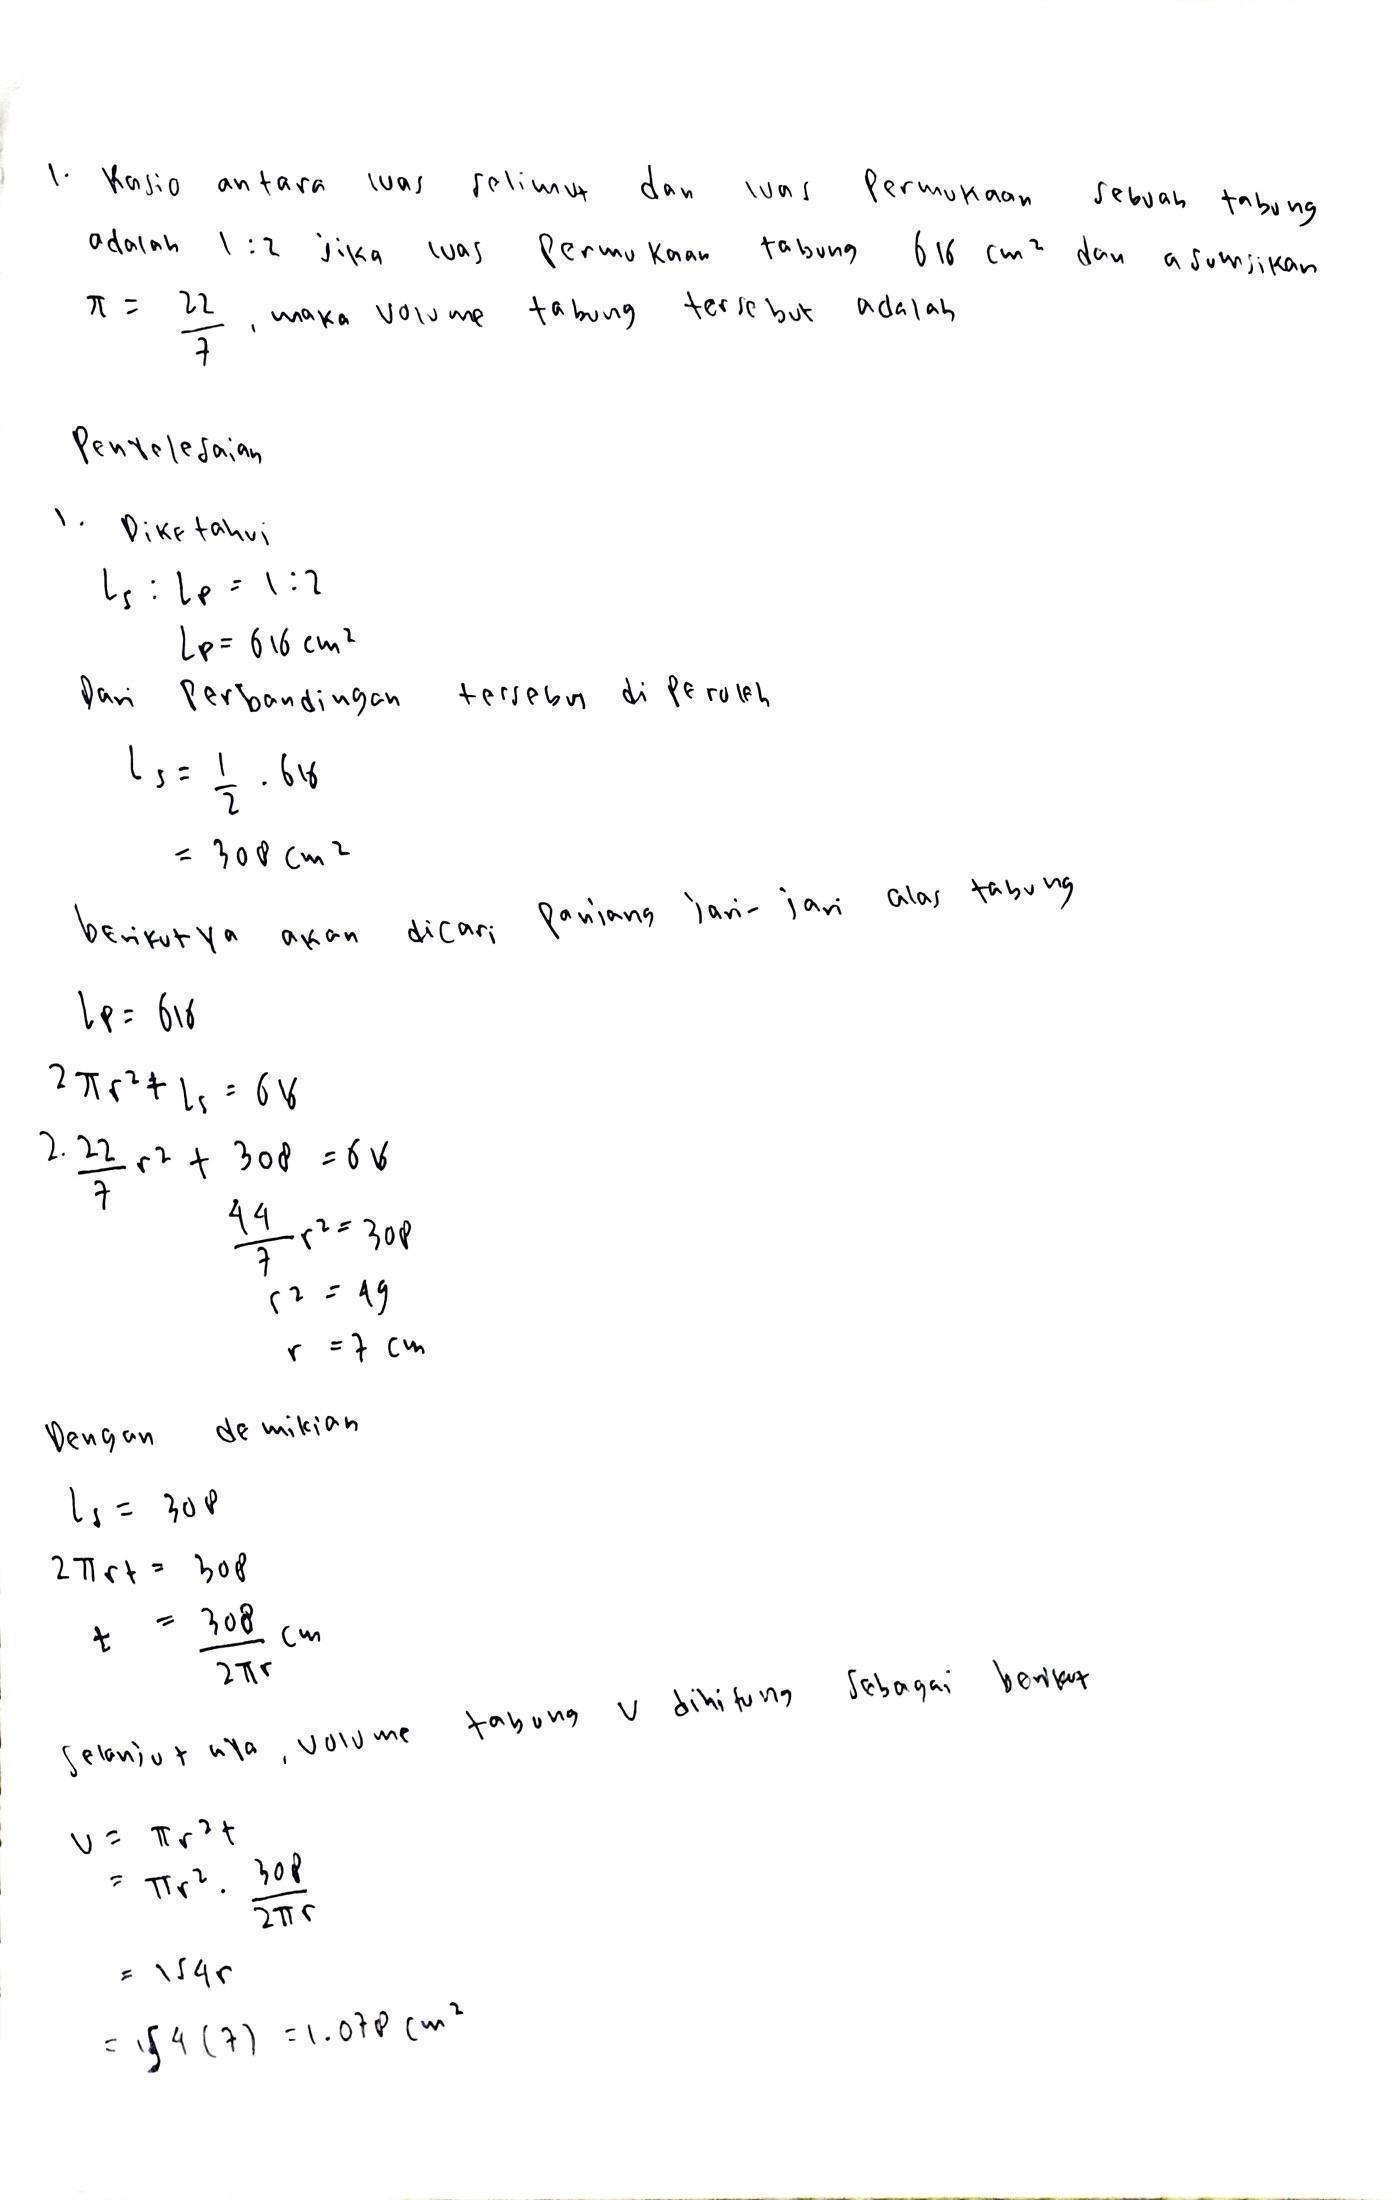 1. Rasio antara luas selimut dan luas Permukaan sebuah tabung
adalah 1 : 2 jika luas Permukaan tabung 616 cm² dan asumsikan
π = 22/7 , maka volume tabung tersebut adalah
Penyelesaian
1. Diketahui
Ls : Lp = 1 : 2
Lp = 616 cm²
Dari Perbandingan tersebut diperoleh
Ls = 1/2 . 616
= 308 cm²
berikutya akan dicari panjang jari-jari alas tabung
Lp = 616
2πr² + Ls = 616
2. 22/7 r² + 308 = 616
44/7 r² = 308
r² = 49
r = 7 cm
Dengan demikian
Ls = 308
2πrt = 308
t = 308/2πr cm
Selanjutnya , volume tabung V dihitung sebagai berikut
V = πr²t
= πr² . 308/2πr
= 154r
= 154 (7) = 1.078 cm²